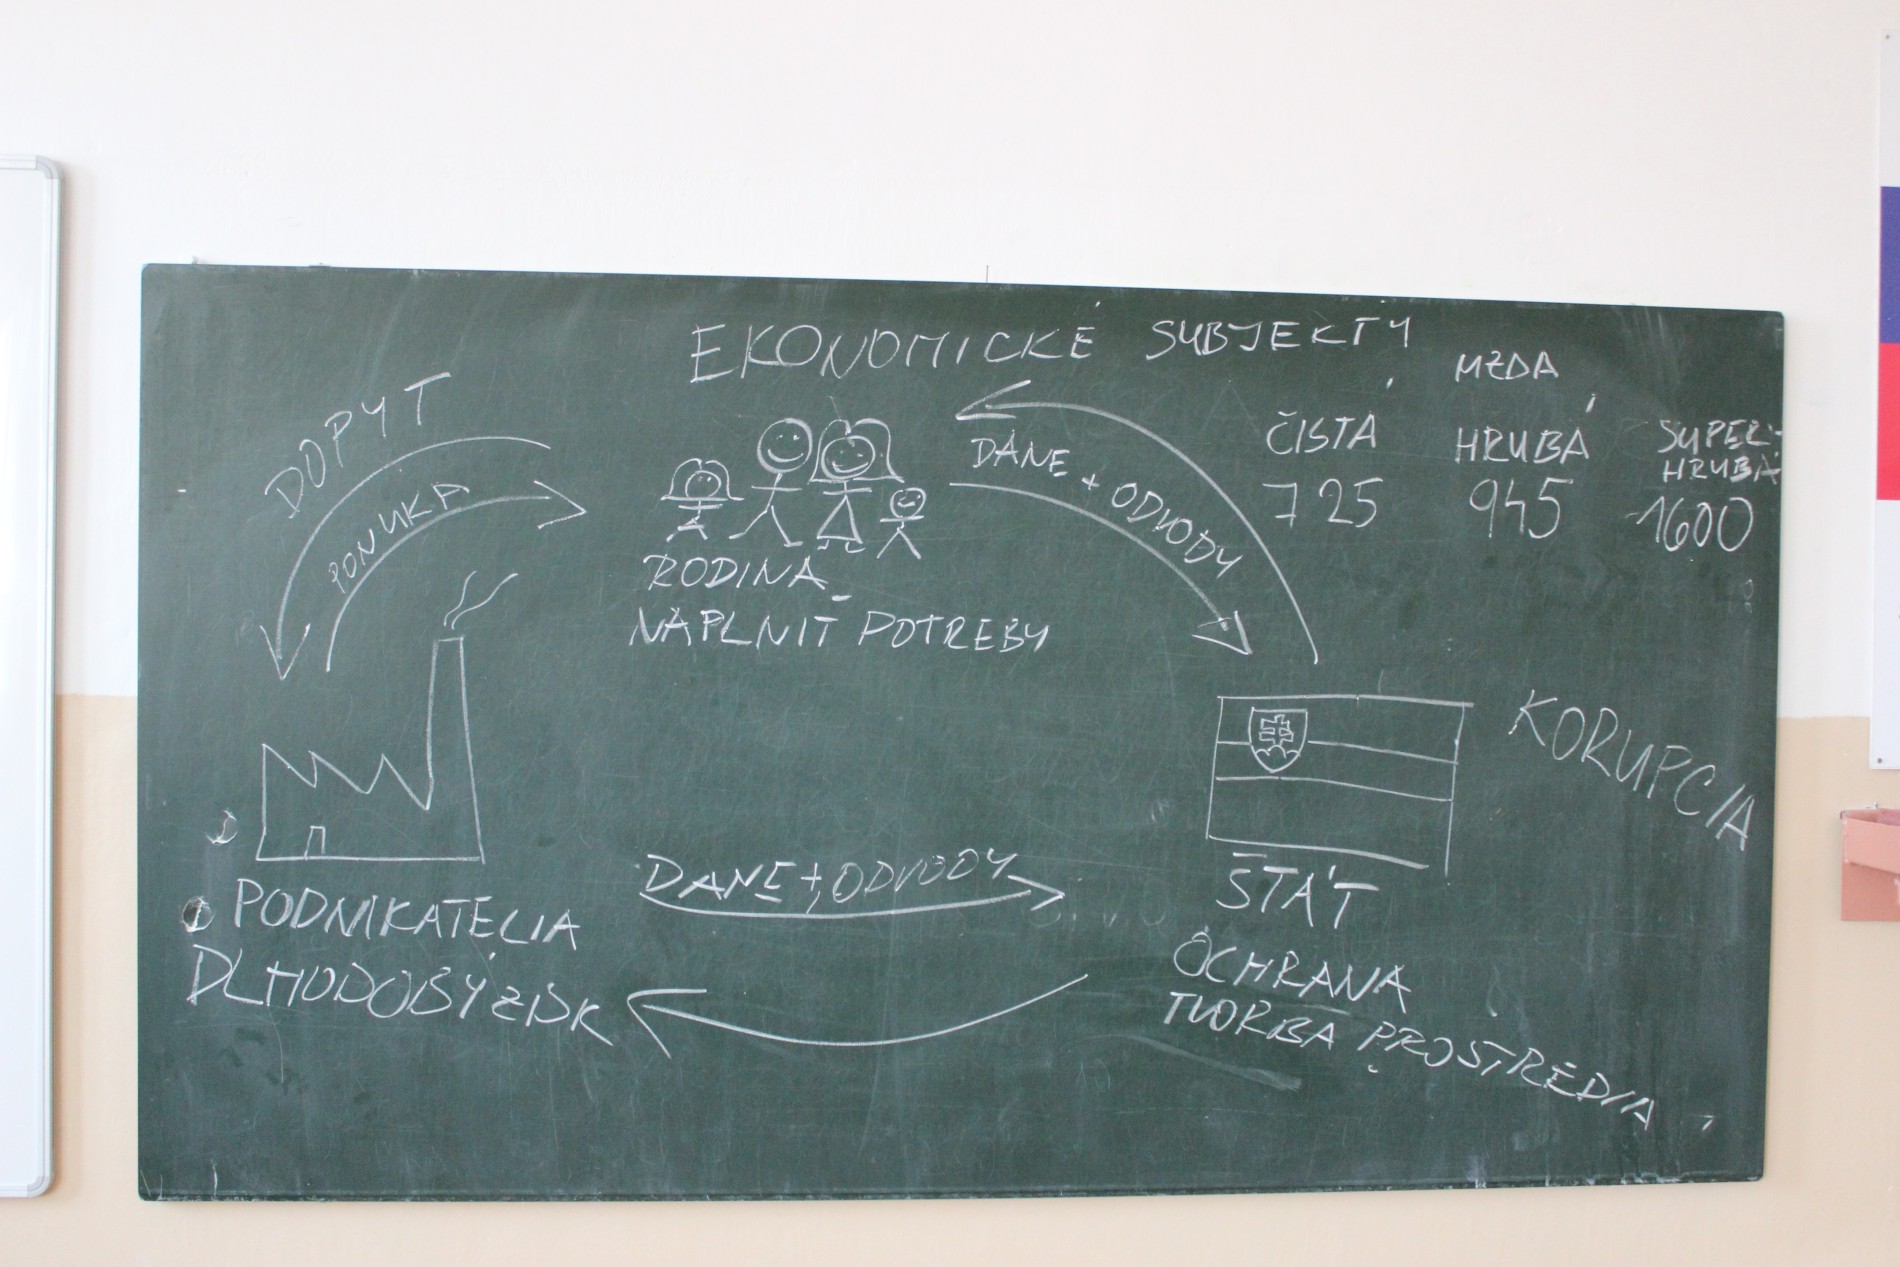 EKONOMICKÉ SUBJEKTY
MZDA
ČISTÁ HRUBÁ SUPER-
HRUBÁ
725 945 1600
DOPYT
PONUKA
DANE + ODVODY
RODINA
NAPLNIŤ POTREBY
KORUPCIA
DANE + ODVODY
ŠTÁT
OCHRANA
TVORBA PROSTREDIA
PODNIKATELIA
DLHODOBÝ ZISK